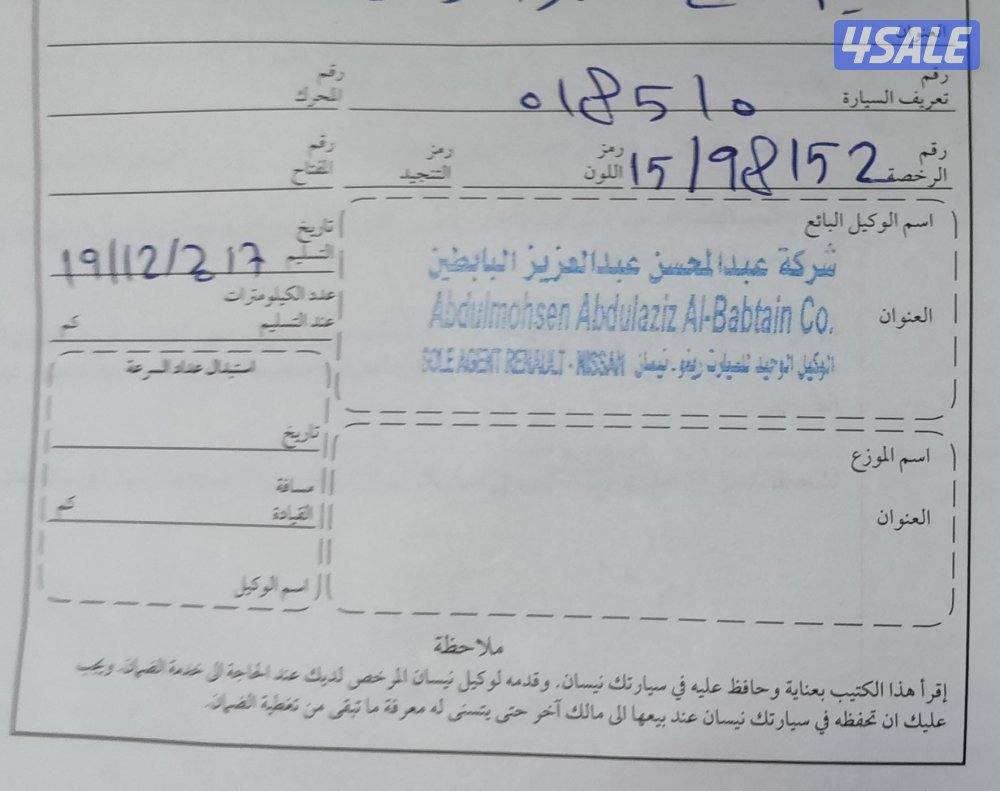 4SALE
العنوان
رقم تعريف السيارة 018510 رقم المحرك
رقم الرخصة 15/98152 رمز اللون رمز التنجيد رقم المفتاح
اسم الوكيل البائع
شركة عبدالمحسن عبدالعزيز البابطين
Abdulmohsen Abdulaziz Al-Babtain Co.
الوكيل الوحيد للسيارات رينو - نيسان SOLE AGENT RENAULT - NISSAN
العنوان
تاريخ التسليم 19/12/217
عدد الكيلومترات عند التسليم كم
استبدال عداد السرعة
تاريخ
مسافة القيادة كم
اسم الوكيل
اسم الموزع
العنوان
ملاحظة
إقرأ هذا الكتيب بعناية وحافظ عليه في سيارتك نيسان. وقدمه لوكيل نيسان المرخص لديك عند الحاجة الى خدمة الضمان. ويجب
عليك ان تحفظه في سيارتك نيسان عند بيعها الى مالك آخر حتى يتسنى له معرفة ما تبقى من تغطية الضمان.